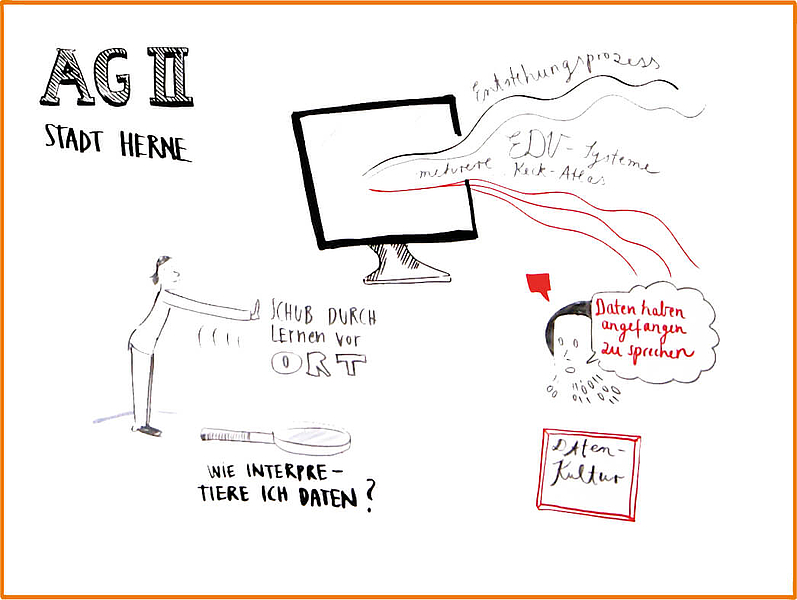 AG II
STADT HERNE
Entstehungsprozess
mehrere EDV-Systeme
Keck-Atlas
SCHUB DURCH
Lernen vor
ORT
Daten haben
angefangen
zu sprechen
WIE INTERPRE-
TIERE ICH DATEN?
DAten-
Kultur